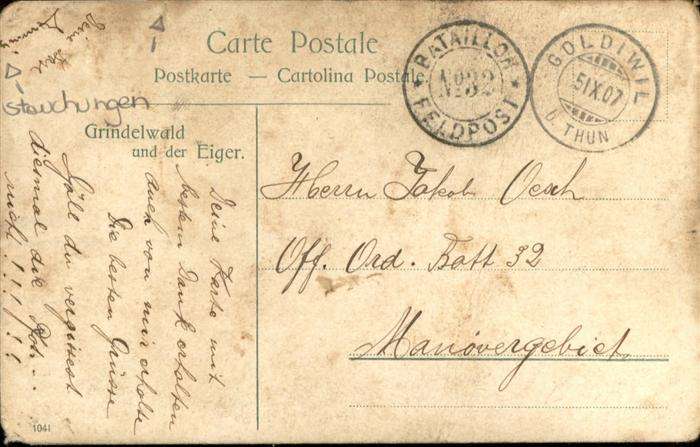 Carte Postale
Postkarte — Cartolina Postale
Grindelwald
und der Eiger.
BATAILLON
No 32
FELDPOST
GOLDIWIL
5 IX.07
Ü. THUN
Herrn Jakob Oesch
Off. Ord. Batt 32
Manövergebiet
Deine Karte mit
bestem Dank erhalten
auch von mir erhalte
Die besten Grüsse
Gäll du vergisset
diesmal die
nicht !!!!!
Deine
Stauchungen
1041